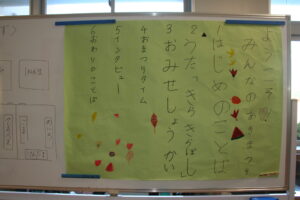 ようこそ!!!
みんなのおまつり
1 はじめのことば
2 うた♪きらきらぼし
3 おみせしょうかい
4 おまつりタイム
5 インタビュー
6 おわりのことば